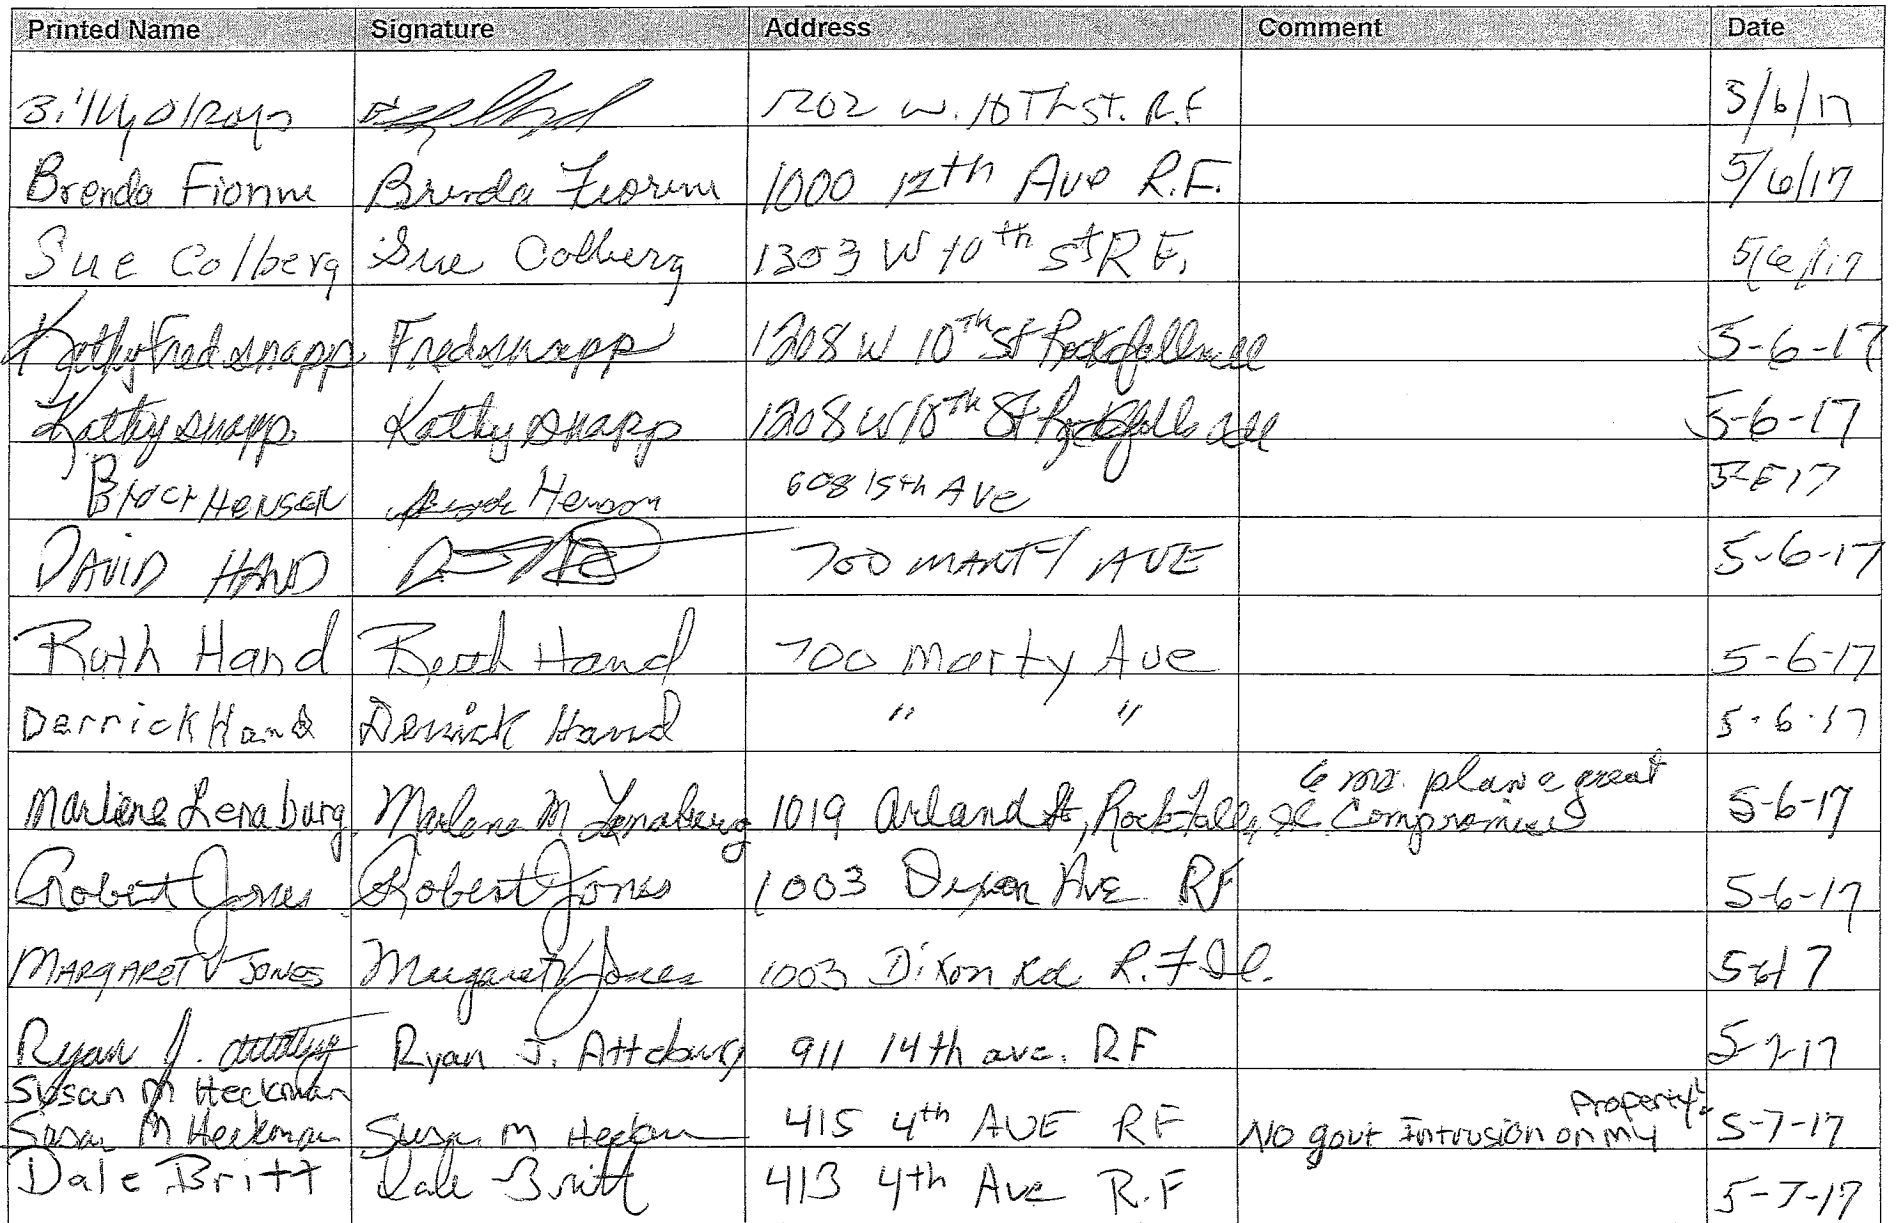 Printed Name Signature Address Comment Date
1202 W. 10Th St. R.F 5/6/17
Brenda Fiorini Brenda Fiorini 1000 12th Ave R.F. 5/6/17
Sue Colberg Sue Colberg 1303 W 10th St R F. 5/6/17
Kathy Fred Snapp Fred Snapp 1208 W 10Th St Rockfalls Ill 5-6-17
Kathy Snapp Kathy Snapp 1208 W 10Th St Rockfalls Ill 5-6-17
Henson 608 15th Ave 17
DAVID HAND 700 MARTY AVE 5-6-17
Ruth Hand Ruth Hand 700 Marty Ave 5-6-17
Derrick Hand Derrick Hand " " 5-6-17
6 mo. plan a great
Marlene Lenaburg Marlene M Lenaburg 1019 Arland St, Rock Falls, Il Compromise 5-6-17
Robert Jones Robert Jones 1003 Dixon Ave RF 5-6-17
MARGARET V JONES Margaret V Jones 1003 Dixon Rd R.F Il. 5-6-17
Ryan J. Ryan J. Attebury 911 14th ave. RF 5-7-17
Susan M Heckman
Property!
Susan M Heckman Susan M Heckman 415 4th AVE RF No govt Intrusion on my 5-7-17
Dale Britt Dale Britt 413 4th Ave R.F 5-7-17